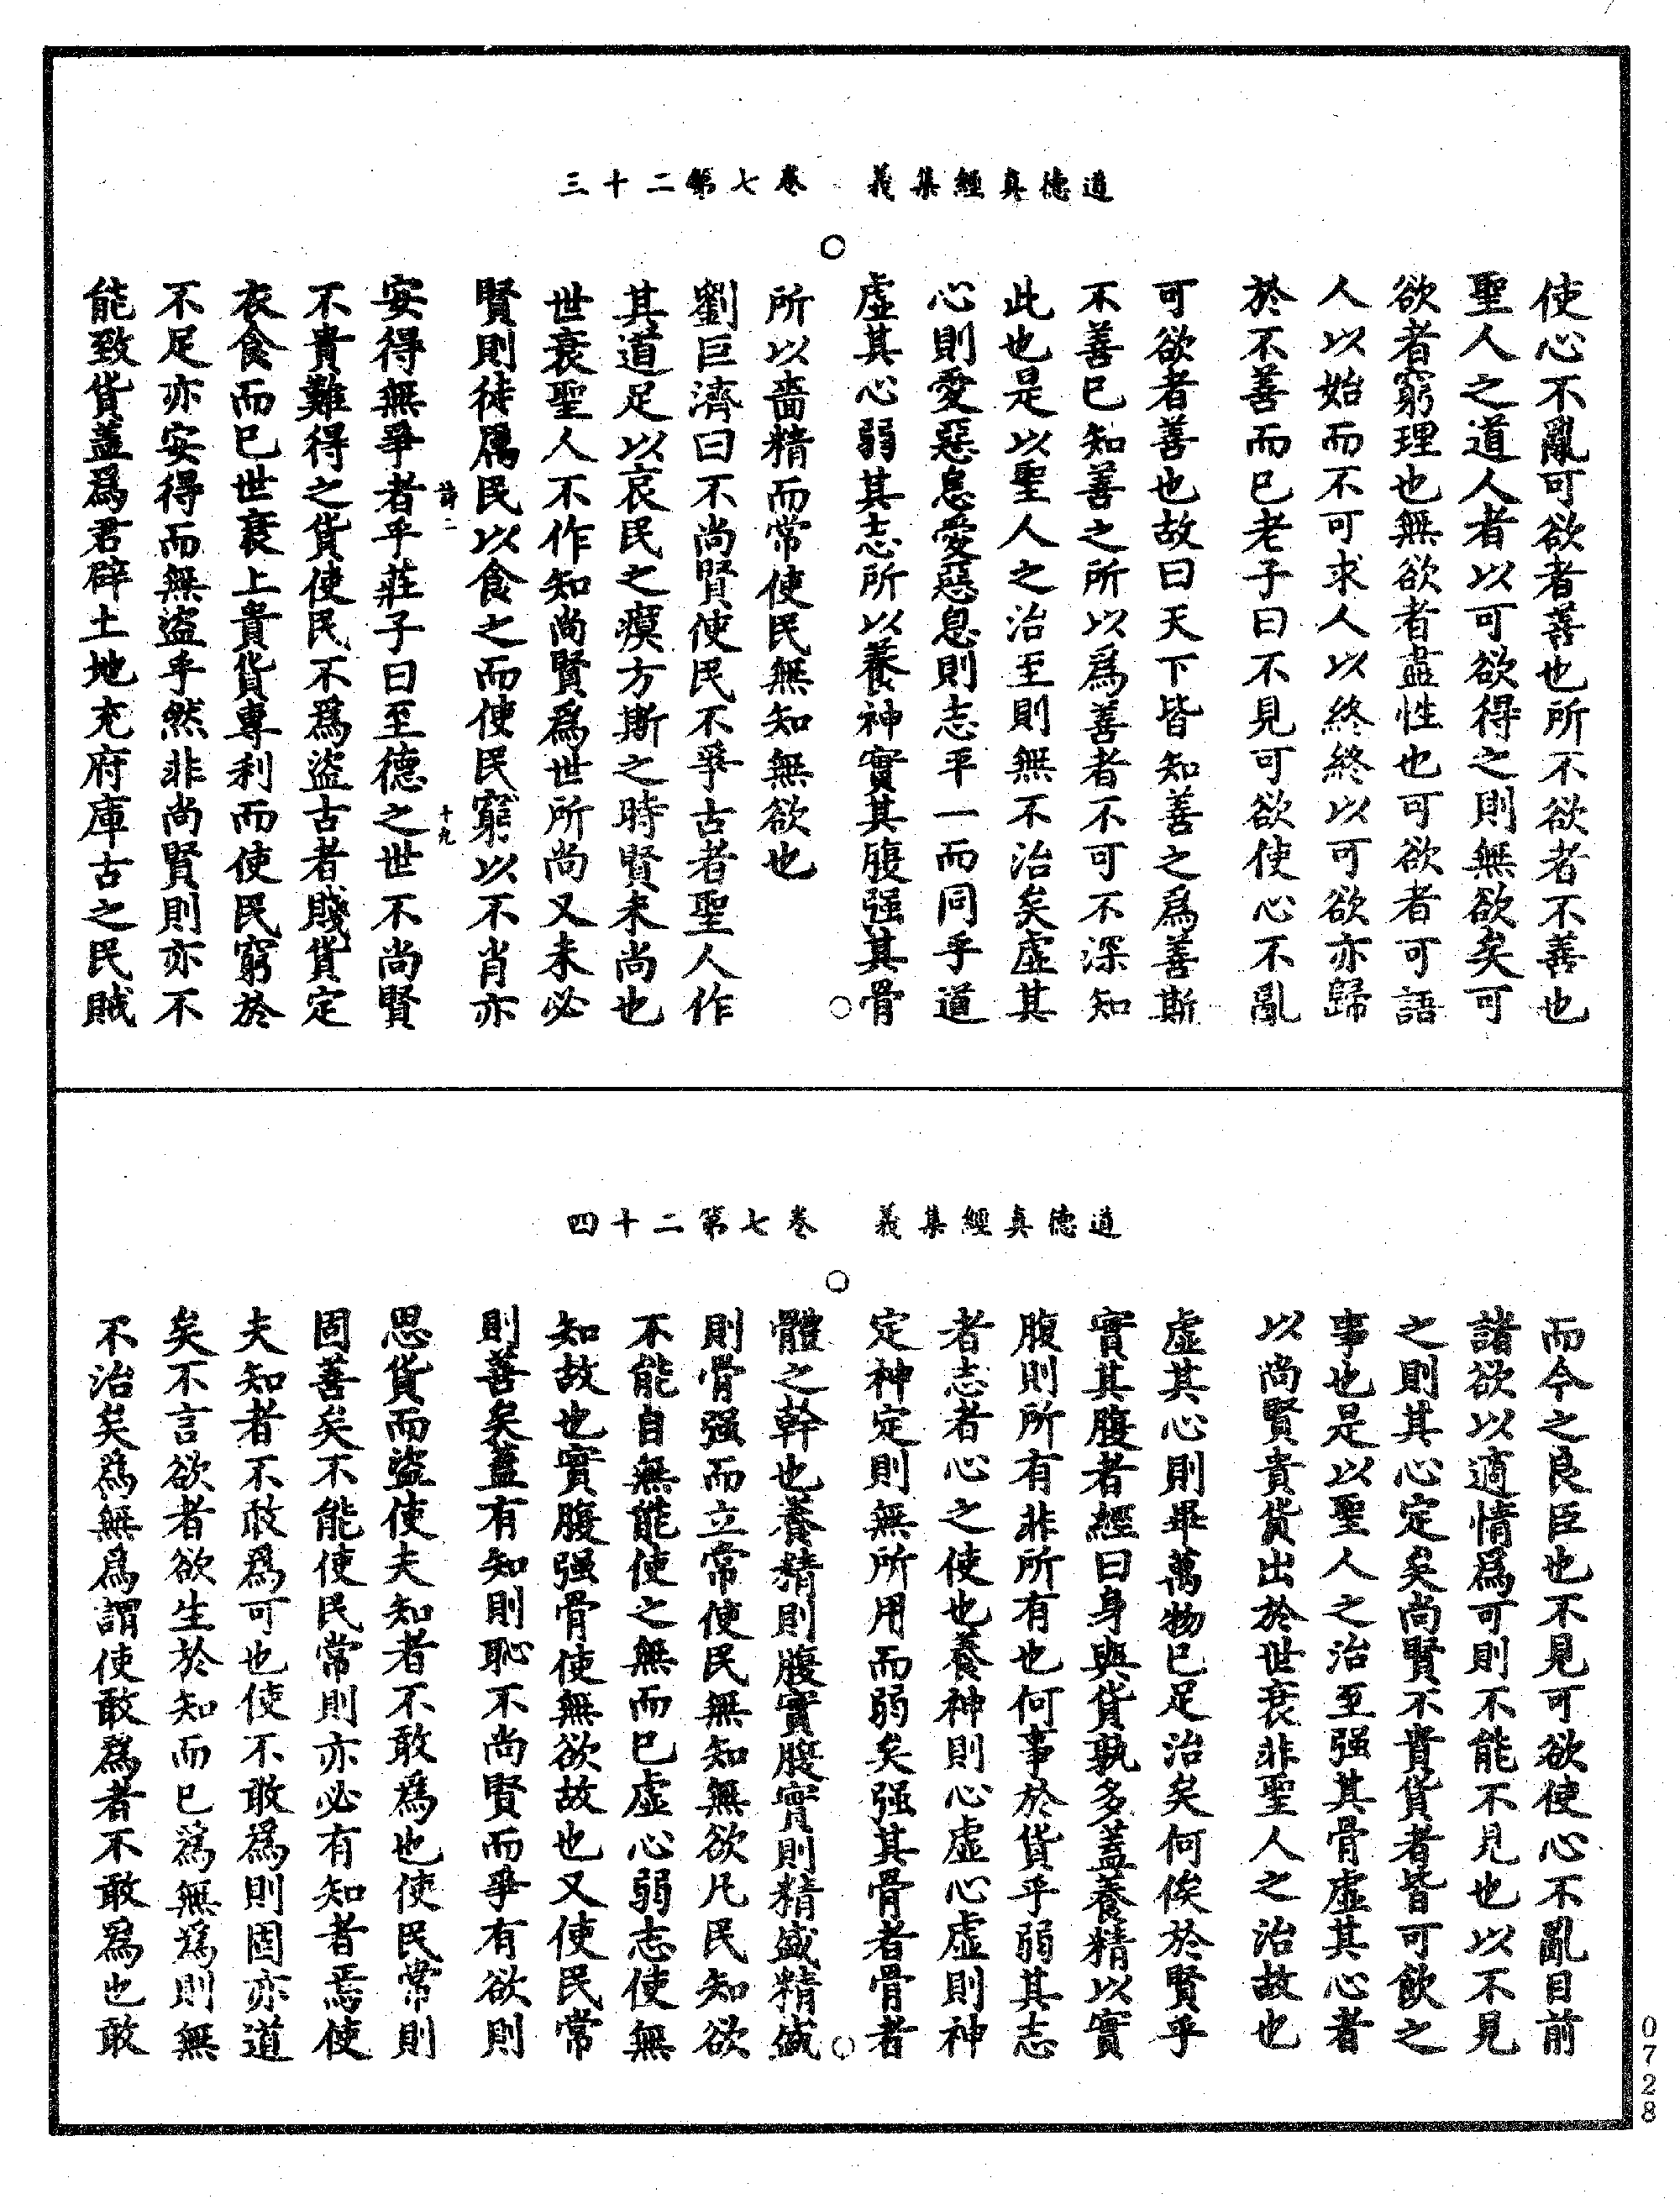 道德真經集義　卷七第二十三
使心不亂可欲者善也所不欲者不善也
聖人之道人者以可欲得之則無欲矣可
欲者窮理也無欲者盡性也可欲者可語
人以始而不可求人以終終以可欲亦歸
於不善而已老子曰不見可欲使心不亂
可欲者善也故曰天下皆知善之爲善斯
不善已知善之所以爲善者不可不深知
此也是以聖人之治至則無不治矣虛其
心則愛惡怠愛惡息則志平一而同乎道
虛其心弱其志所以養神實其腹强其骨
所以嗇精而常使民無知無欲也
劉巨濟曰不尚賢使民不爭古者聖人作
其道足以哀民之瘼方斯之時賢未尚也
世衰聖人不作知尚賢爲世所尚又未必
賢則徒爲民以食之而使民窮以不肖亦
詩二　十九
安得無爭者乎莊子曰至德之世不尚賢
不貴難得之貨使民不爲盜古者賤貨定
衣食而已世衰上貴貨專利而使民窮於
不足亦安得而無盜乎然非尚賢則亦不
能致貨蓋爲君辟土地充府庫古之民賊
道德真經集義　卷七第二十四
而今之良臣也不見可欲使心不亂目前
諸欲以適情爲可則不能不見也以不見
之則其心定矣尚賢不貴貨者皆可飲之
事也是以聖人之治至强其骨虛其心者
以尚賢貴貨出於世衰非聖人之治故也
虛其心則畢萬物已足治矣何俟於賢乎
實其腹者經曰身與貨孰多蓋養精以實
腹則所有非所有也何事於貨乎弱其志
者志者心之使也養神則心虛心虛則神
定神定則無所用而弱矣强其骨者骨者
體之幹也養精則腹實腹實則精盛精盛
則骨强而立常使民無知無欲凡民知欲
不能自無能使之無而已虛心弱志使無
知故也實腹强骨使無欲故也又使民常
則善矣蓋有知則恥不尚賢而爭有欲則
思貨而盜使夫知者不敢爲也使民常則
固善矣不能使民常則亦必有知者焉使
夫知者不敢爲可也使不敢爲則固亦道
矣不言欲者欲生於知而已爲無爲則無
不治矣爲無爲謂使敢爲者不敢爲也敢
0728